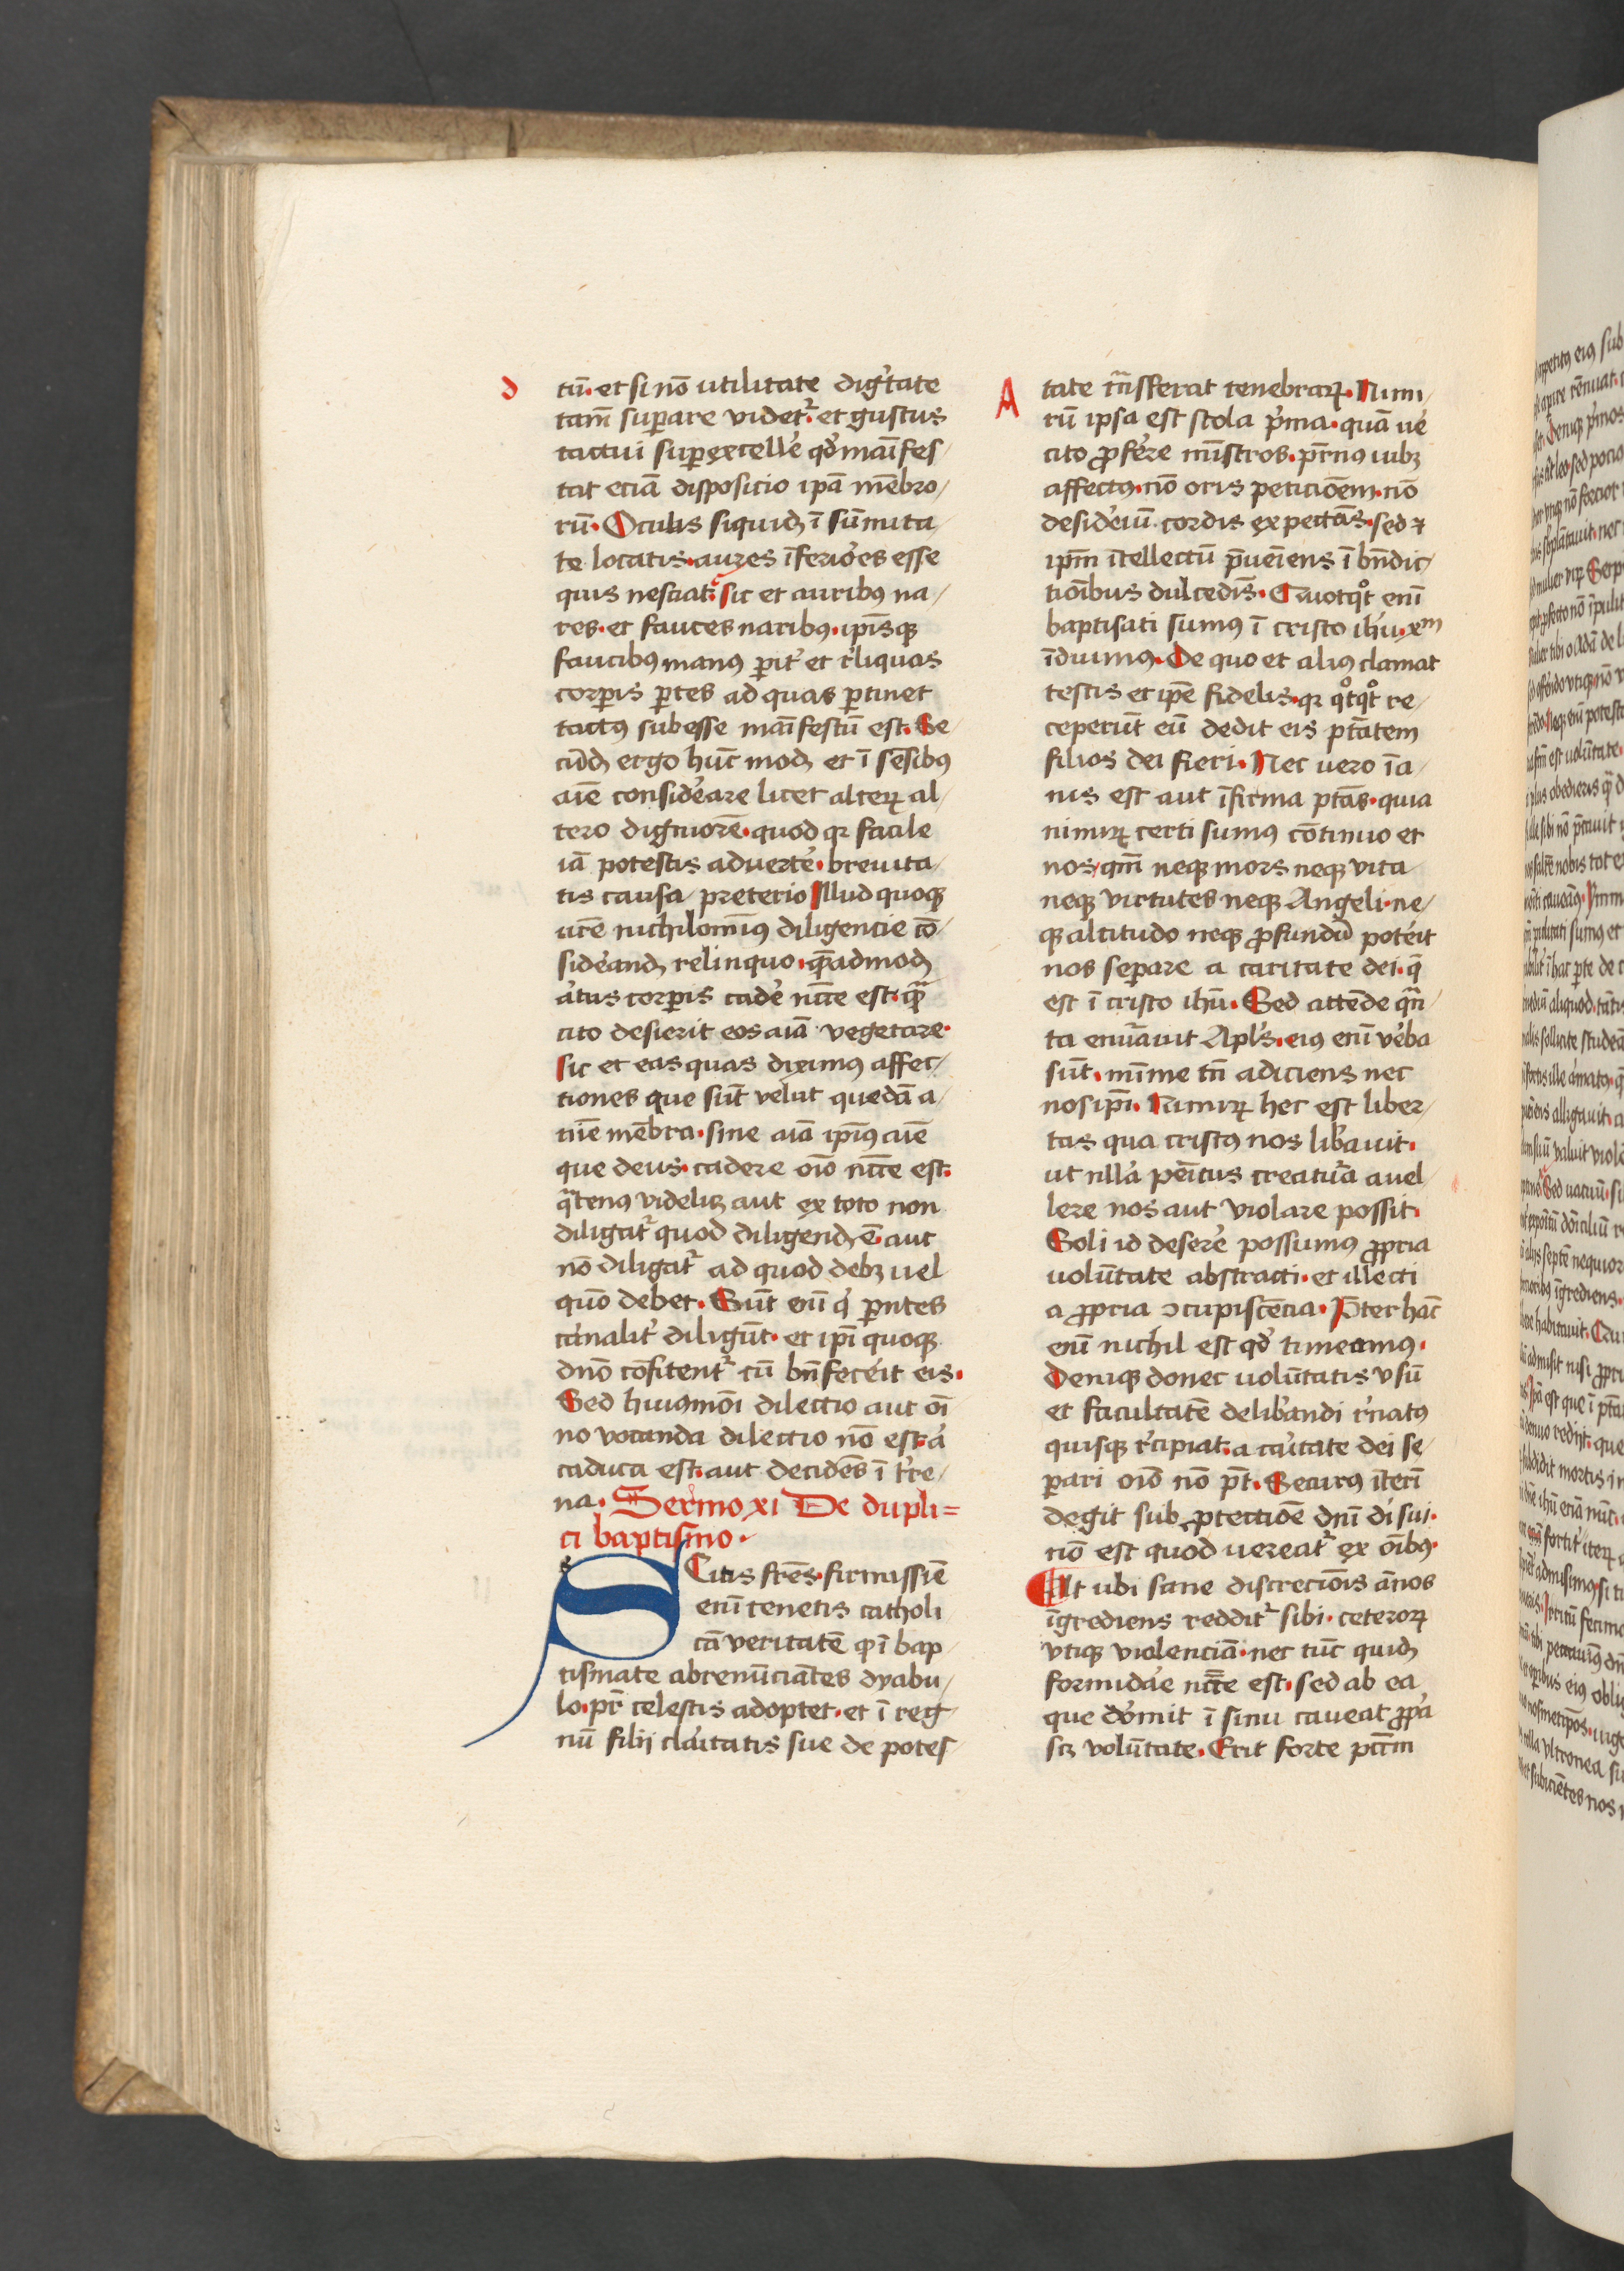 D
tū. et si nō utilitate dig̾tate
tam̄ suꝑare videt᷑. et gustus
tactui suꝑexcelle᷑ qd̓ maīfes/
tat eciā disposicio ipā mēbro/
rū. Oculis siquiꝺ ī sūmita/
te locatis. aures īferio᷑es esse
quis nesciat. sic et auribꝰ na/
res. et fauces naribꝰ. ip̄isqꝫ
faucibꝰ manꝰ ꝑit᷑ et r̓liquas
corꝑis ꝑtes ad quas ꝑtinet
tactꝰ subesse maīfestū est. Se/
cūꝺ ergo hūc moꝺ et ī sēsibꝰ
aīe conside᷑are licet alteꝝ al/
tero digniorē. quod qꝛ facile
iā potestis adverte᷑. brevita/
tis causa preterio Illud quoqꝫ
ur̄e nichilomīꝰ diligencie cō/
side᷑anꝺ relinquo. quēadmoꝺ
a᷑tus corꝑis cade᷑ ncc̄e est. qr̄
cito desierit eos aīa vegetare.
sic et eas quas diximus affec/
tiones que sūt velut quedā a/
nīe mēbra. sine aīa ip̄iꝰ aīe
que deus. cadere oīo ncc̄e est.
qa̓tenꝰ videlicꝫ aut ex toto non
diligat᷑ quod diligenꝺ ē. aut
nō diligat᷑ ad quod debꝫ vel
quō debet. Sūt enī qi̓ ꝑntes
ca᷑nalit᷑ diligūt. et ip̄i quoqꝫ
dn̄o cōfitent᷑ cū bn̄fece᷑it eis.
Sed huiꝰmōi dilectio aut oī
no vocanda dilectio nō est. a᷑
caduca est. aut decidēs ī t᷑re/
na. Sermo xi De dupli=
ci baptismo.
s
SCitis fr̄es. firmissīe
enī tenetis catholi
cā veritatē ꝙ ī bap/
tismate abrenūciātes dyabu/
lo. pr̄ celestis adoptet. et ī reg/
nū filij cla᷑itatis sue de potes/
A
tate tr̄asferat tenebraꝝ. Nimi/
rū ipsa est stola pi̓ma. quā ve᷑
cito ꝓfe᷑re mīstros. pr̄nꝰ iubꝫ
affectꝰ. nō oris peticiōem. nō
deside᷑iū cordis expectās. sed ⁊
ip̄m ītellectū p̄veīens ī bn̄dic/
tiōibus dulcedīs. Quotqͦt enī
baptisati sumꝰ ī cristo ih̄u. xm
īduimꝰ. De quo et aliꝰ clamat
testis et ip̄e fidelis. qꝛ qͦtqͦt re/
ceperūt eū dedit eis ptātem
filios dei fieri. Nec vero īa/
nis est aut īfirma ptās. quia
nimiꝝ certi sumꝰ cōtinuo et
nos. qm̄ neqꝫ mors neqꝫ vita
neqꝫ virtutes neqꝫ Angeli. ne/
qꝫ altitudo neqꝫ ꝓfundū pote᷑it
nos seꝑare a caritate dei. q̄
est ī cristo ih̄u. Sed attēde qn̄/
ta enūa᷑vit Apl̓s. eiꝰ enī ve᷑ba
sūt. mīme tn̄ adiciens nec
nosip̄i. Nimiꝝ hec est liber/
tas qua cristꝰ nos lib̓avit.
ut nlla᷑ peītus creatu᷑a avel/
lere nos aut violare possit.
Soli id desere᷑ possumus ꝓpria
volūtate abstracti. et illecti
a ꝓpria ɔcupiscēcia. P̄ter hāc
enī nichil est qd̓ timeamꝰ.
Deniqꝫ donec volūtatis vsū
et facultatē delib̓andi r̓natꝰ
quisqꝫ r̓cipiat. a ca᷑itate dei se/
ꝑari oīo nō pt̄. Securꝰ īterī
degit sub ꝓtectiōe dn̄i di̓ sui.
nō est quod vereat᷑ ex oībꝰ.
At ubi sane discreciōis ānos
īgrediens reddit᷑ sibi. ceteroꝝ
vtiqꝫ violenciā. nec tūc quiꝺ
formida᷑e ncc̄e est. sed ab ea
que do᷑mit ī sinu caveat ꝓp̓a
scꝫ volūtate. Erit forte pcc̄m